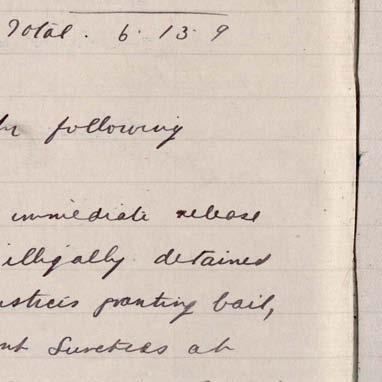 Total. 6. 13. 9
following
immediate release
illegally detained
granting bail,
Sureties at